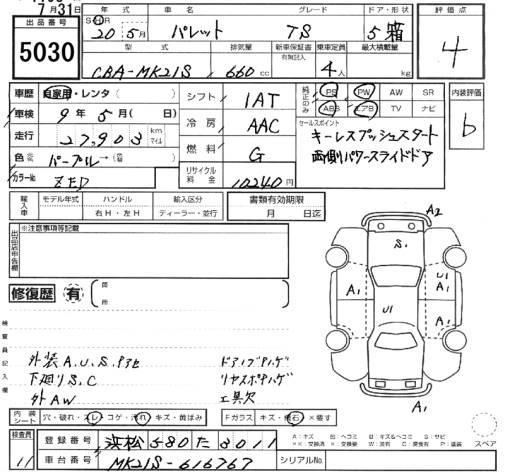 7月31日
出品番号
5030
年式 車名 グレード ドア・形状
S H 20年 5月 パレット TS 5 箱
型式 排気量 新車保証書 有無記入 乗車定員 最大積載量
CBA-MK21S 660cc 4人 kg
評価点
4
車歴 自家用・レンタ( )
車検 9年5月( 日)
走行 27,903 km マイル
色 パープル→
カラーNo. ZED
シフト 1AT
冷房 AAC
燃料 G
リサイクル料金 10240円
純正のみ PS PW AW SR
ABS エアB TV ナビ
セールスポイント
キーレスプッシュスタート
両側パワースライドドア
内装評価
b
輸入車 モデル年式 ハンドル 輸入区分
年 右H・左H ディーラー・並行
書類有効期限
月 日迄
※注意事項等記載
出品店申告欄
修復歴 有 箇所
検査員記入欄
外装A.U.S.P.ヱ
下廻りS.C
外AW
ドアノブハゲ
リヤスポハゲ
工具欠
A2
S1
A1
U1
U1
A1
A1
内装シート 穴・破れ・スレ・コゲ・汚れ・キズ・黄ばみ
Fガラス キズ・飛石・×済す
スペア
検査員
11
登録番号 浜松580た3011
車台番号 MK21S-616767
シリアルNo.